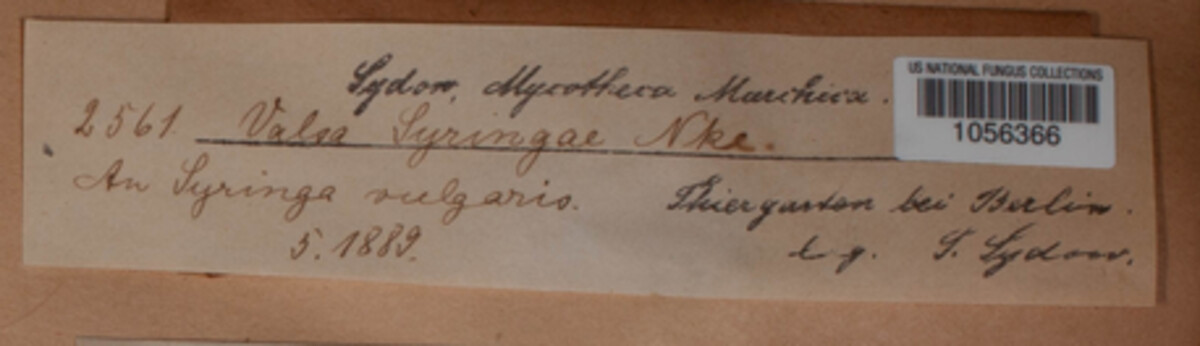 Sydow, Mycotheca Marchica.
US NATIONAL FUNGUS COLLECTIONS
1056366
2561 Valsa Syringae Nke.
An Syringa vulgaris. Thiergarten bei Berlin.
5. 1889. Sydow.